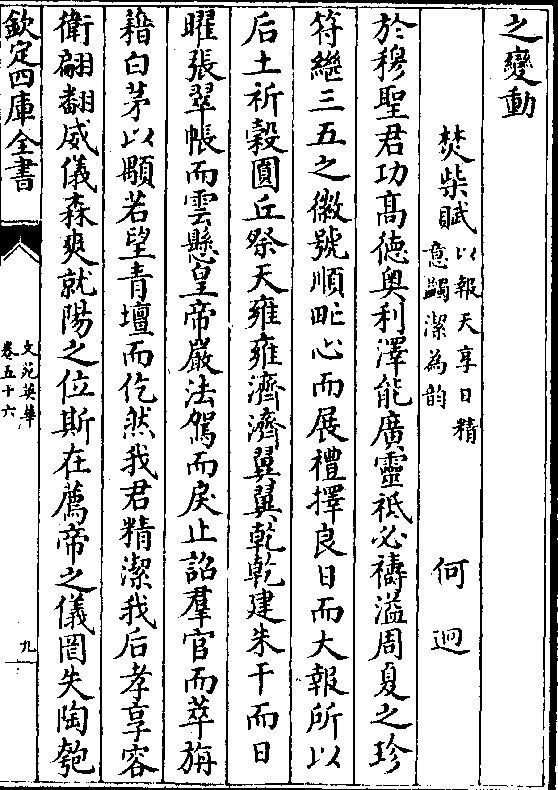 之變動
焚柴賦以報天享日精意蠲潔為韵 何迥
於穆聖君功高德奥利澤能廣靈祇必禱溢周夏之珍
符繼三五之徽號順甿心而展禮擇良日而大報所以
后土祈穀圓丘祭天雍雍濟濟翼翼乾乾建朱干而日
曜張翠帳而雲懸皇帝嚴法駕而戾止詔羣官而萃旃
藉白茅以顒若望青壇而仡然我君精潔我后孝享容
衛翩翻威儀森爽就陽之位斯在薦帝之儀罔失陶匏
欽定四庫全書
文苑英華
卷五十六
九